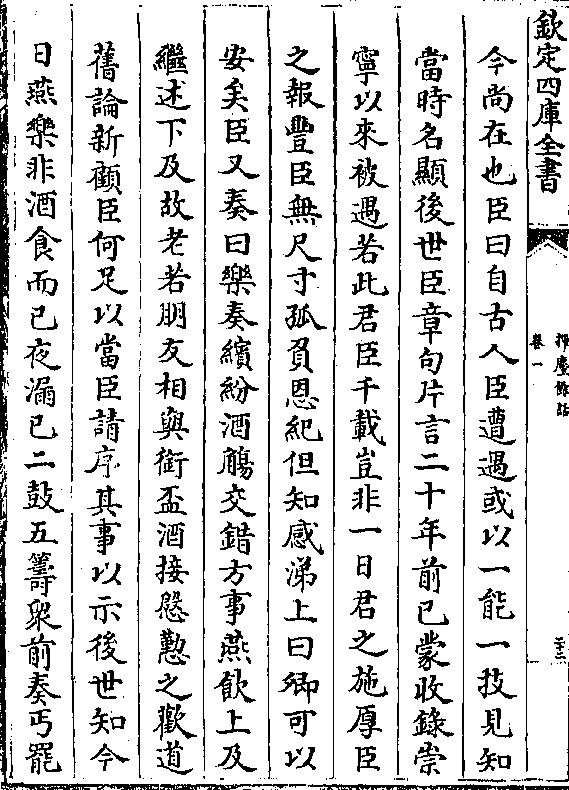 欽定四庫全書
揮麈餘話
卷一
二十三
今尚在也臣曰自古人臣遭遇或以一能一技見知
當時名顯後世臣章句片言二十年前已蒙收錄崇
寧以來被遇若此君臣千載豈非一日君之施厚臣
之報豐臣無尺寸孤負恩紀但知感涕上曰卿可以
安矣臣又奏曰樂奏繽紛酒觴交錯方事燕飲上及
繼述下及故老若朋友相與銜盃酒接慇懃之歡道
舊論新顧臣何足以當臣請序其事以示後世知今
日燕樂非酒食而已夜漏已二鼓五籌衆前奏丐罷